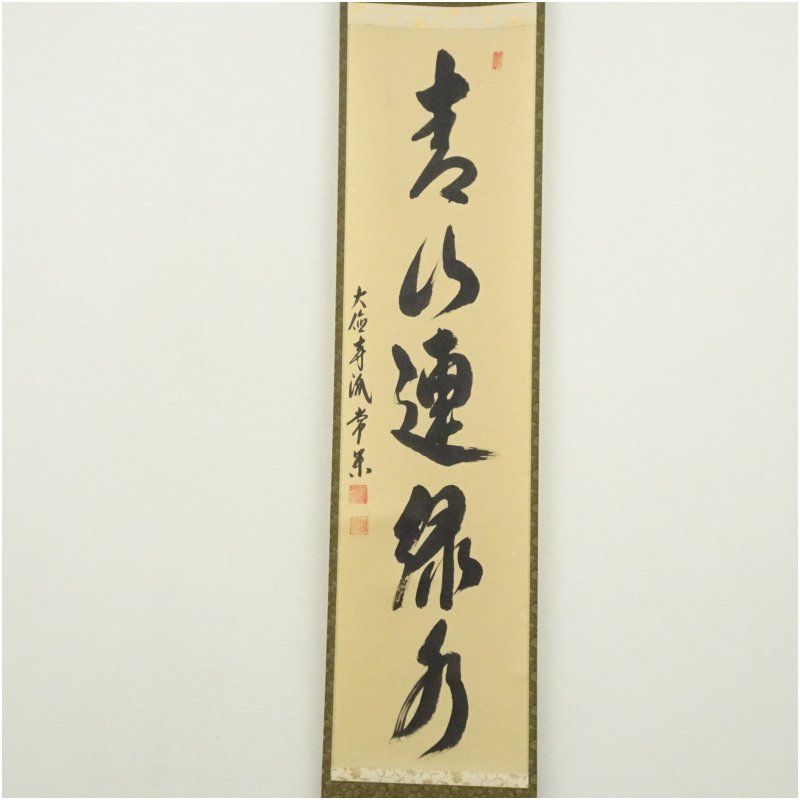 青山連緑水
大徳寺派常栄